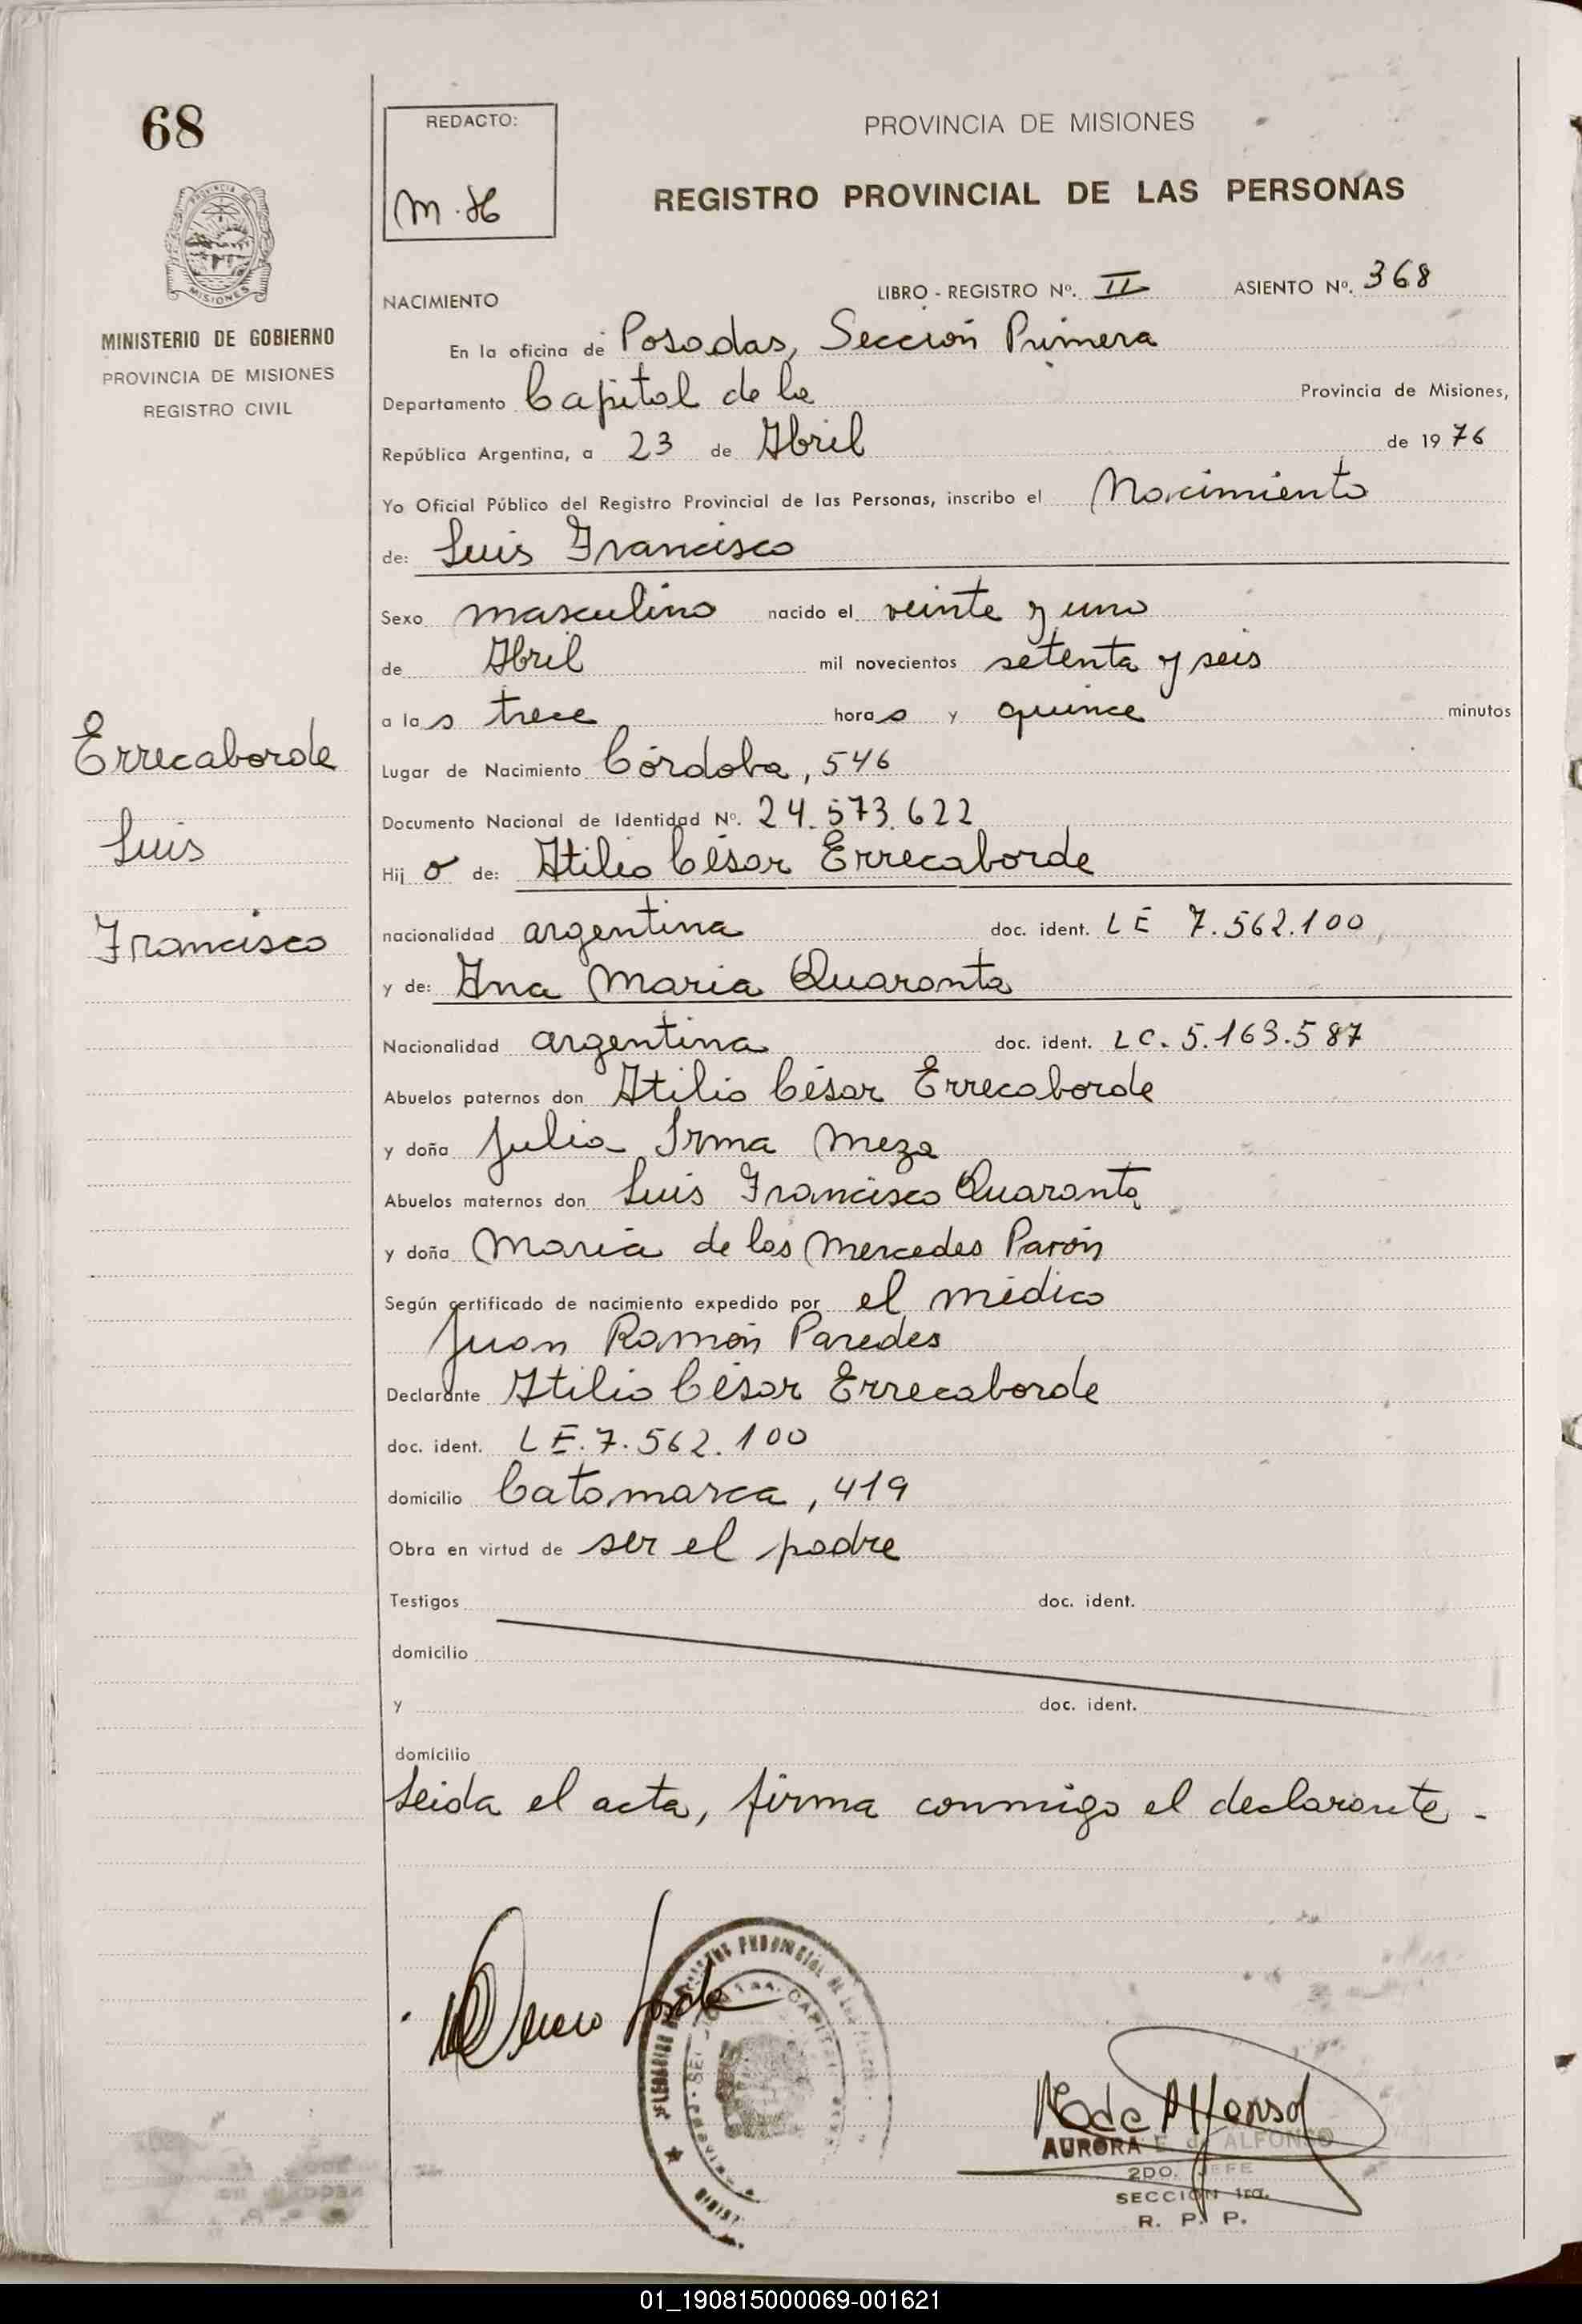 68
REDACTO:
M. H
PROVINCIA DE MISIONES
REGISTRO PROVINCIAL DE LAS PERSONAS
PROVINCIA DE
MISIONES
MINISTERIO DE GOBIERNO
PROVINCIA DE MISIONES
REGISTRO CIVIL
NACIMIENTO LIBRO - REGISTRO Nº. II ASIENTO Nº. 368
En la oficina de Posadas, Sección Primera
Departamento Capital de la Provincia de Misiones,
República Argentina, a 23 de Abril de 1976
Yo Oficial Público del Registro Provincial de las Personas, inscribo el Nacimiento
de: Luis Francisco
Sexo masculino nacido el veinte y uno
de Abril mil novecientos setenta y seis
a las trece horas y quince minutos
Errecaborde
Luis
Francisco
Lugar de Nacimiento Córdoba, 546
Documento Nacional de Identidad Nº. 24.573.622
Hijo de: Atilio César Errecaborde
nacionalidad argentina doc. ident. LE 7.562.100
y de: Ana Maria Quaranta
Nacionalidad argentina doc. ident. LC. 5.163.587
Abuelos paternos don Atilio César Errecaborde
y doña Julia Irma Meza
Abuelos maternos don Luis Francisco Quaranta
y doña María de las Mercedes Parón
Según certificado de nacimiento expedido por el médico
Juan Ramón Paredes
Declarante Atilio César Errecaborde
doc. ident. LE. 7.562.100
domicilio Catamarca, 419
Obra en virtud de ser el padre
Testigos doc. ident.
domicilio
y doc. ident.
domicilio
Leida el acta, firma conmigo el declarante.-
AURORA E. de ALFONSO
2DO. JEFE
SECCION 1ra.
R. P. P.
01_190815000069-001621